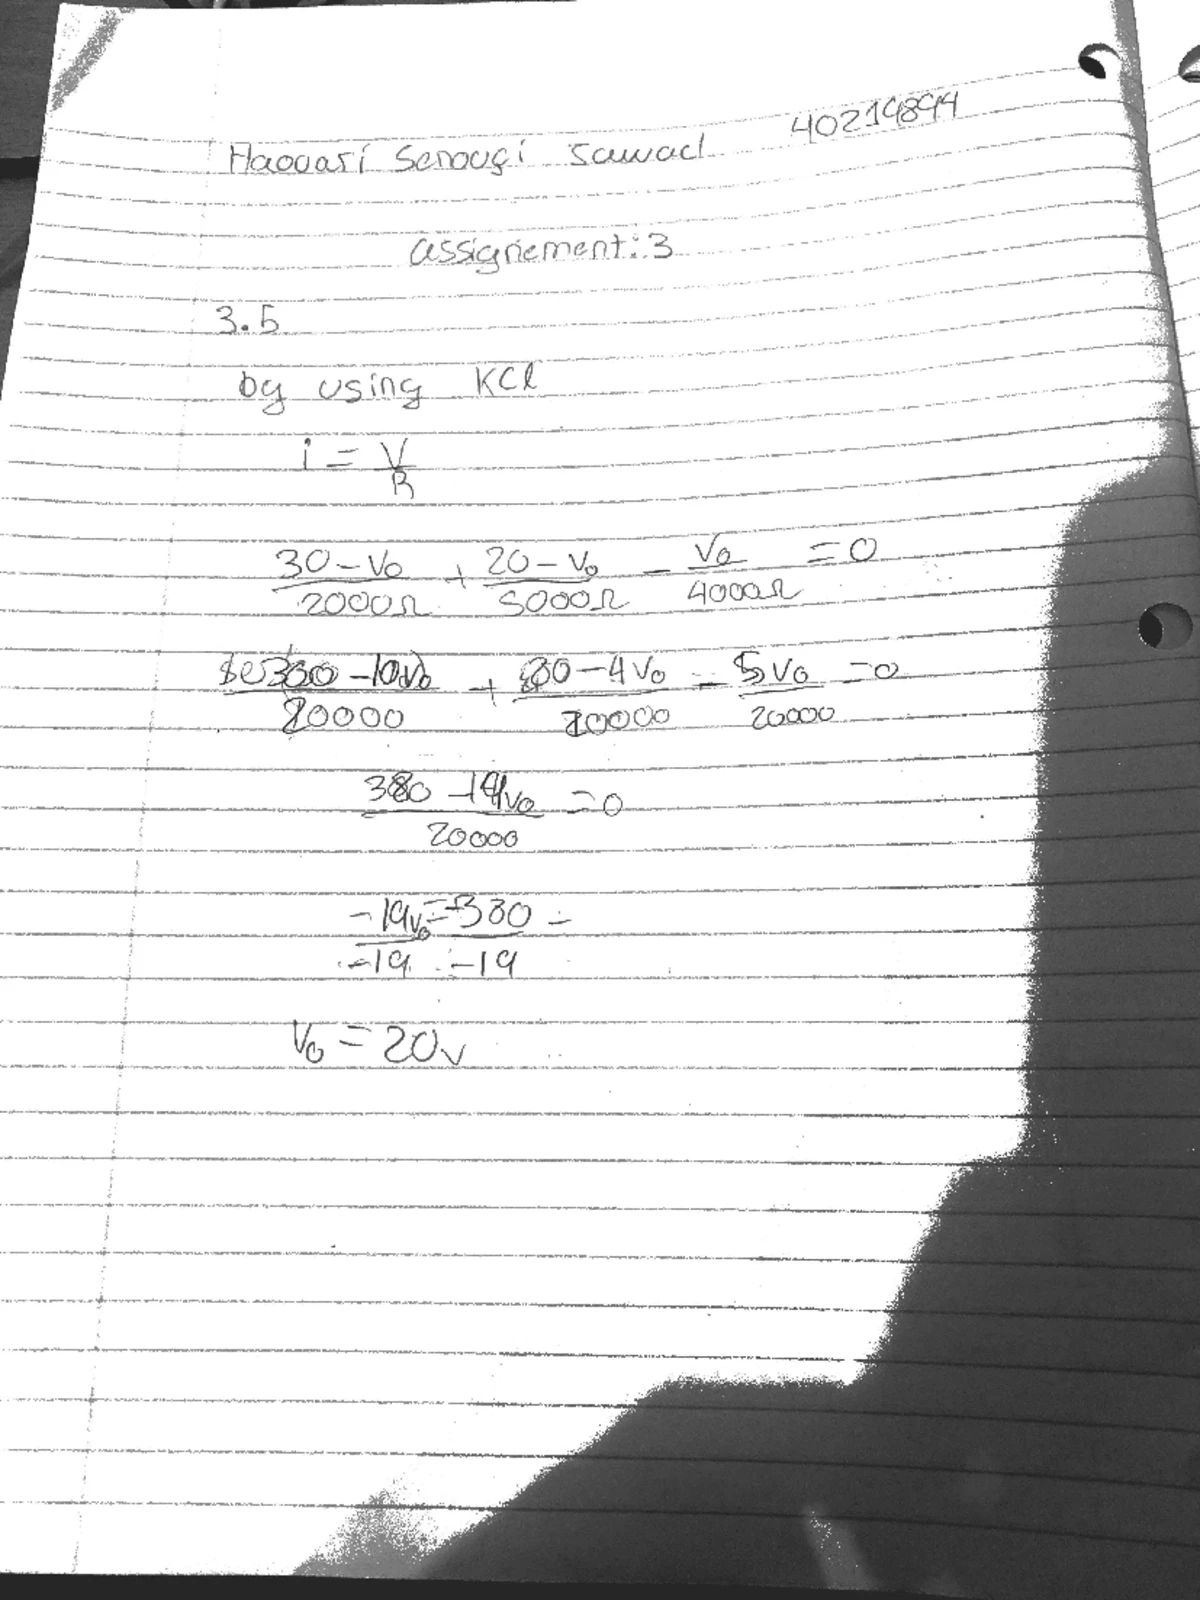 40219894
Haouari Senouçi Jawad
assignement: 3
3.5
by using KCl
i = V/R
(30 - V₀)/2000Ω + (20 - V₀)/5000Ω - V₀/4000Ω = 0
(300 - 10V₀)/20000 + (80 - 4V₀)/20000 - 5V₀/20000 = 0
(380 - 19V₀)/20000 = 0
-19V₀/-19 = -380/-19
V₀ = 20v